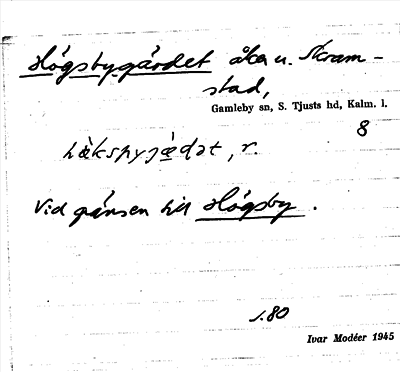 Högsbygärdet åker u. Skram-
stad,
Gamleby sn, S. Tjusts hd, Kalm. l.
8
hækspyjæɖət, r.
Vid gränsen till Högsby.
s. 80
Ivar Modéer 1945